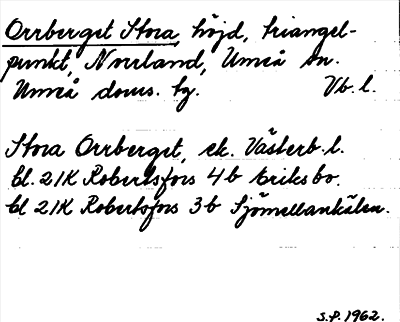 Orrberget Stora, höjd, triangel-
punkt, Norrland, Umeå sn.
Umeå doms. hg. Vb. l.
Stora Orrberget, ek. Västerb. l.
bl. 21K Robertsfors 4b Eriksbo.
bl 21K Robertsfors 3b Sjömellankälen.
S.P. 1962.